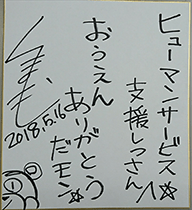 ヒューマンサービス
支援しっさん江
おうえん
ありがとう
だモン☆
2018.5.16